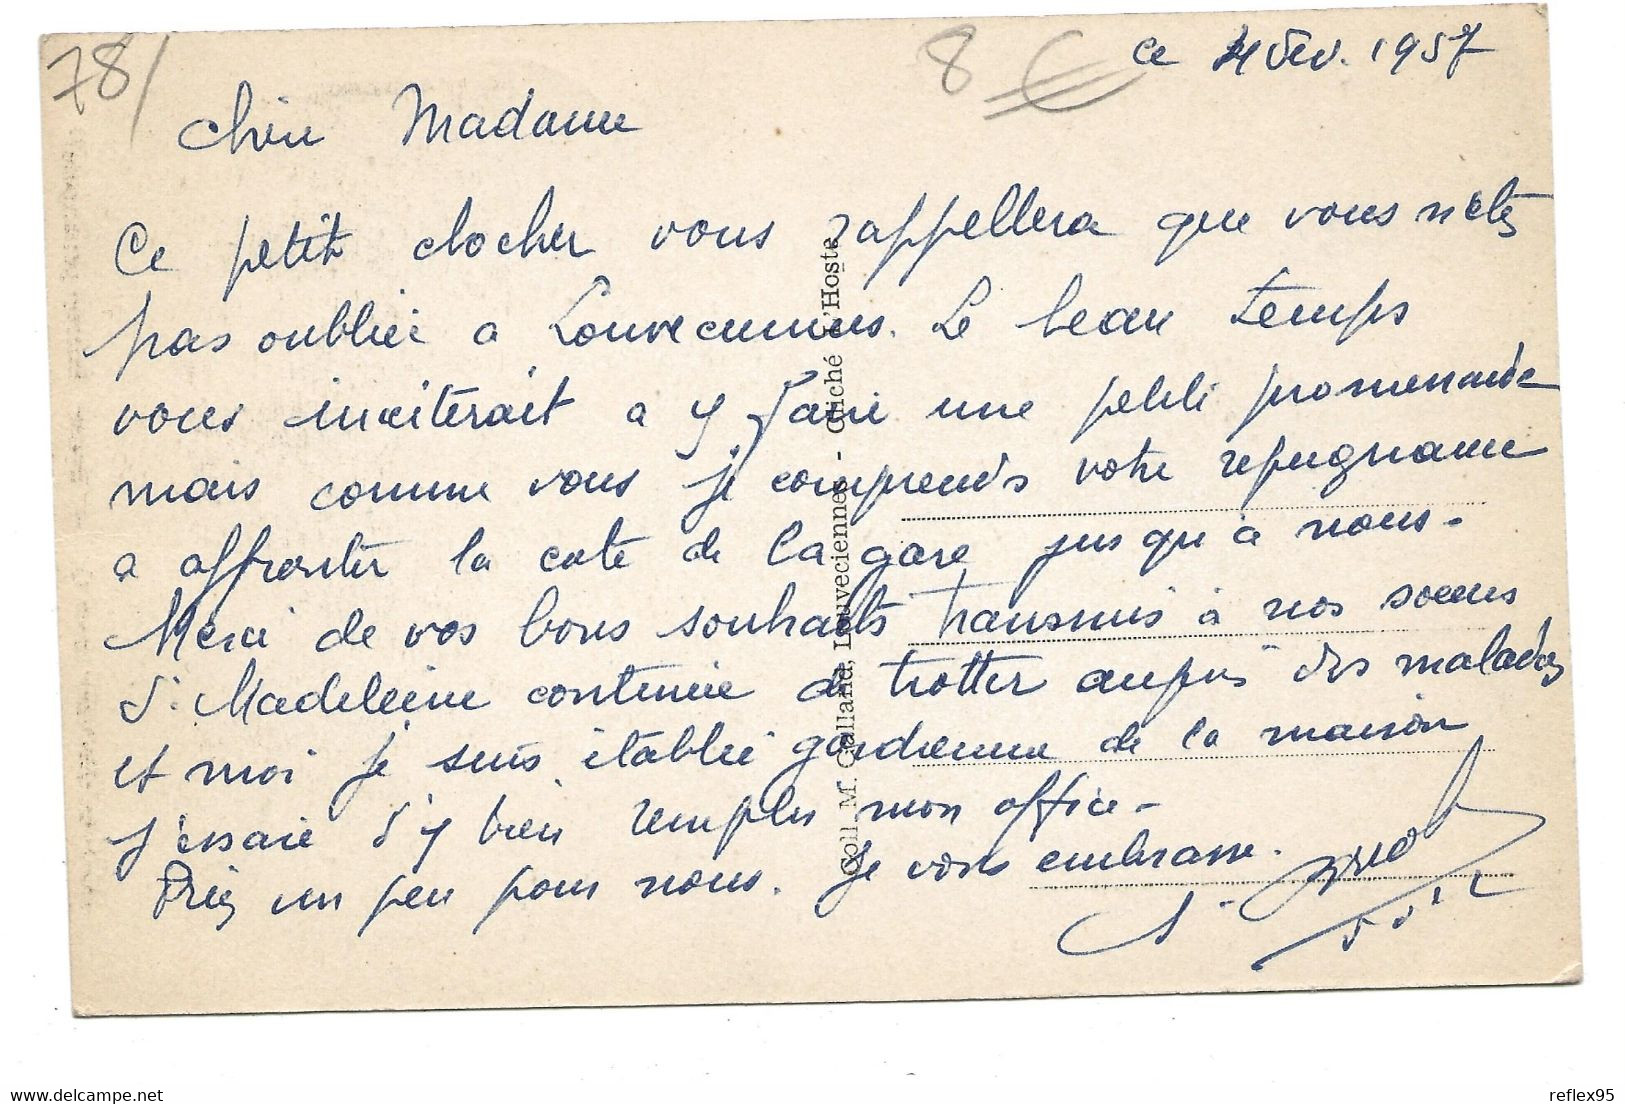 78/
8 €
ce 4 Fev. 1957
Chère Madame
Ce petit clocher vous rappellera que vous n'êtes
pas oubliée a Louveciennes. Le beau temps
vous inciterait a y faire une petite promenade
mais comme vous je comprends votre répugnance
a affronter la cote de la gare jusqu'à nous.
Merci de vos bons souhaits transmis à nos soeurs
Sr Madeleine continue de trotter auprès des malades
et moi je suis établie gardienne de la maison
J'essaie d'y bien remplir mon office-
Priez un peu pour nous. Je vous embrasse.
Coll. M. Calland, Louveciennes - Cliché L'Hoste
reflex95